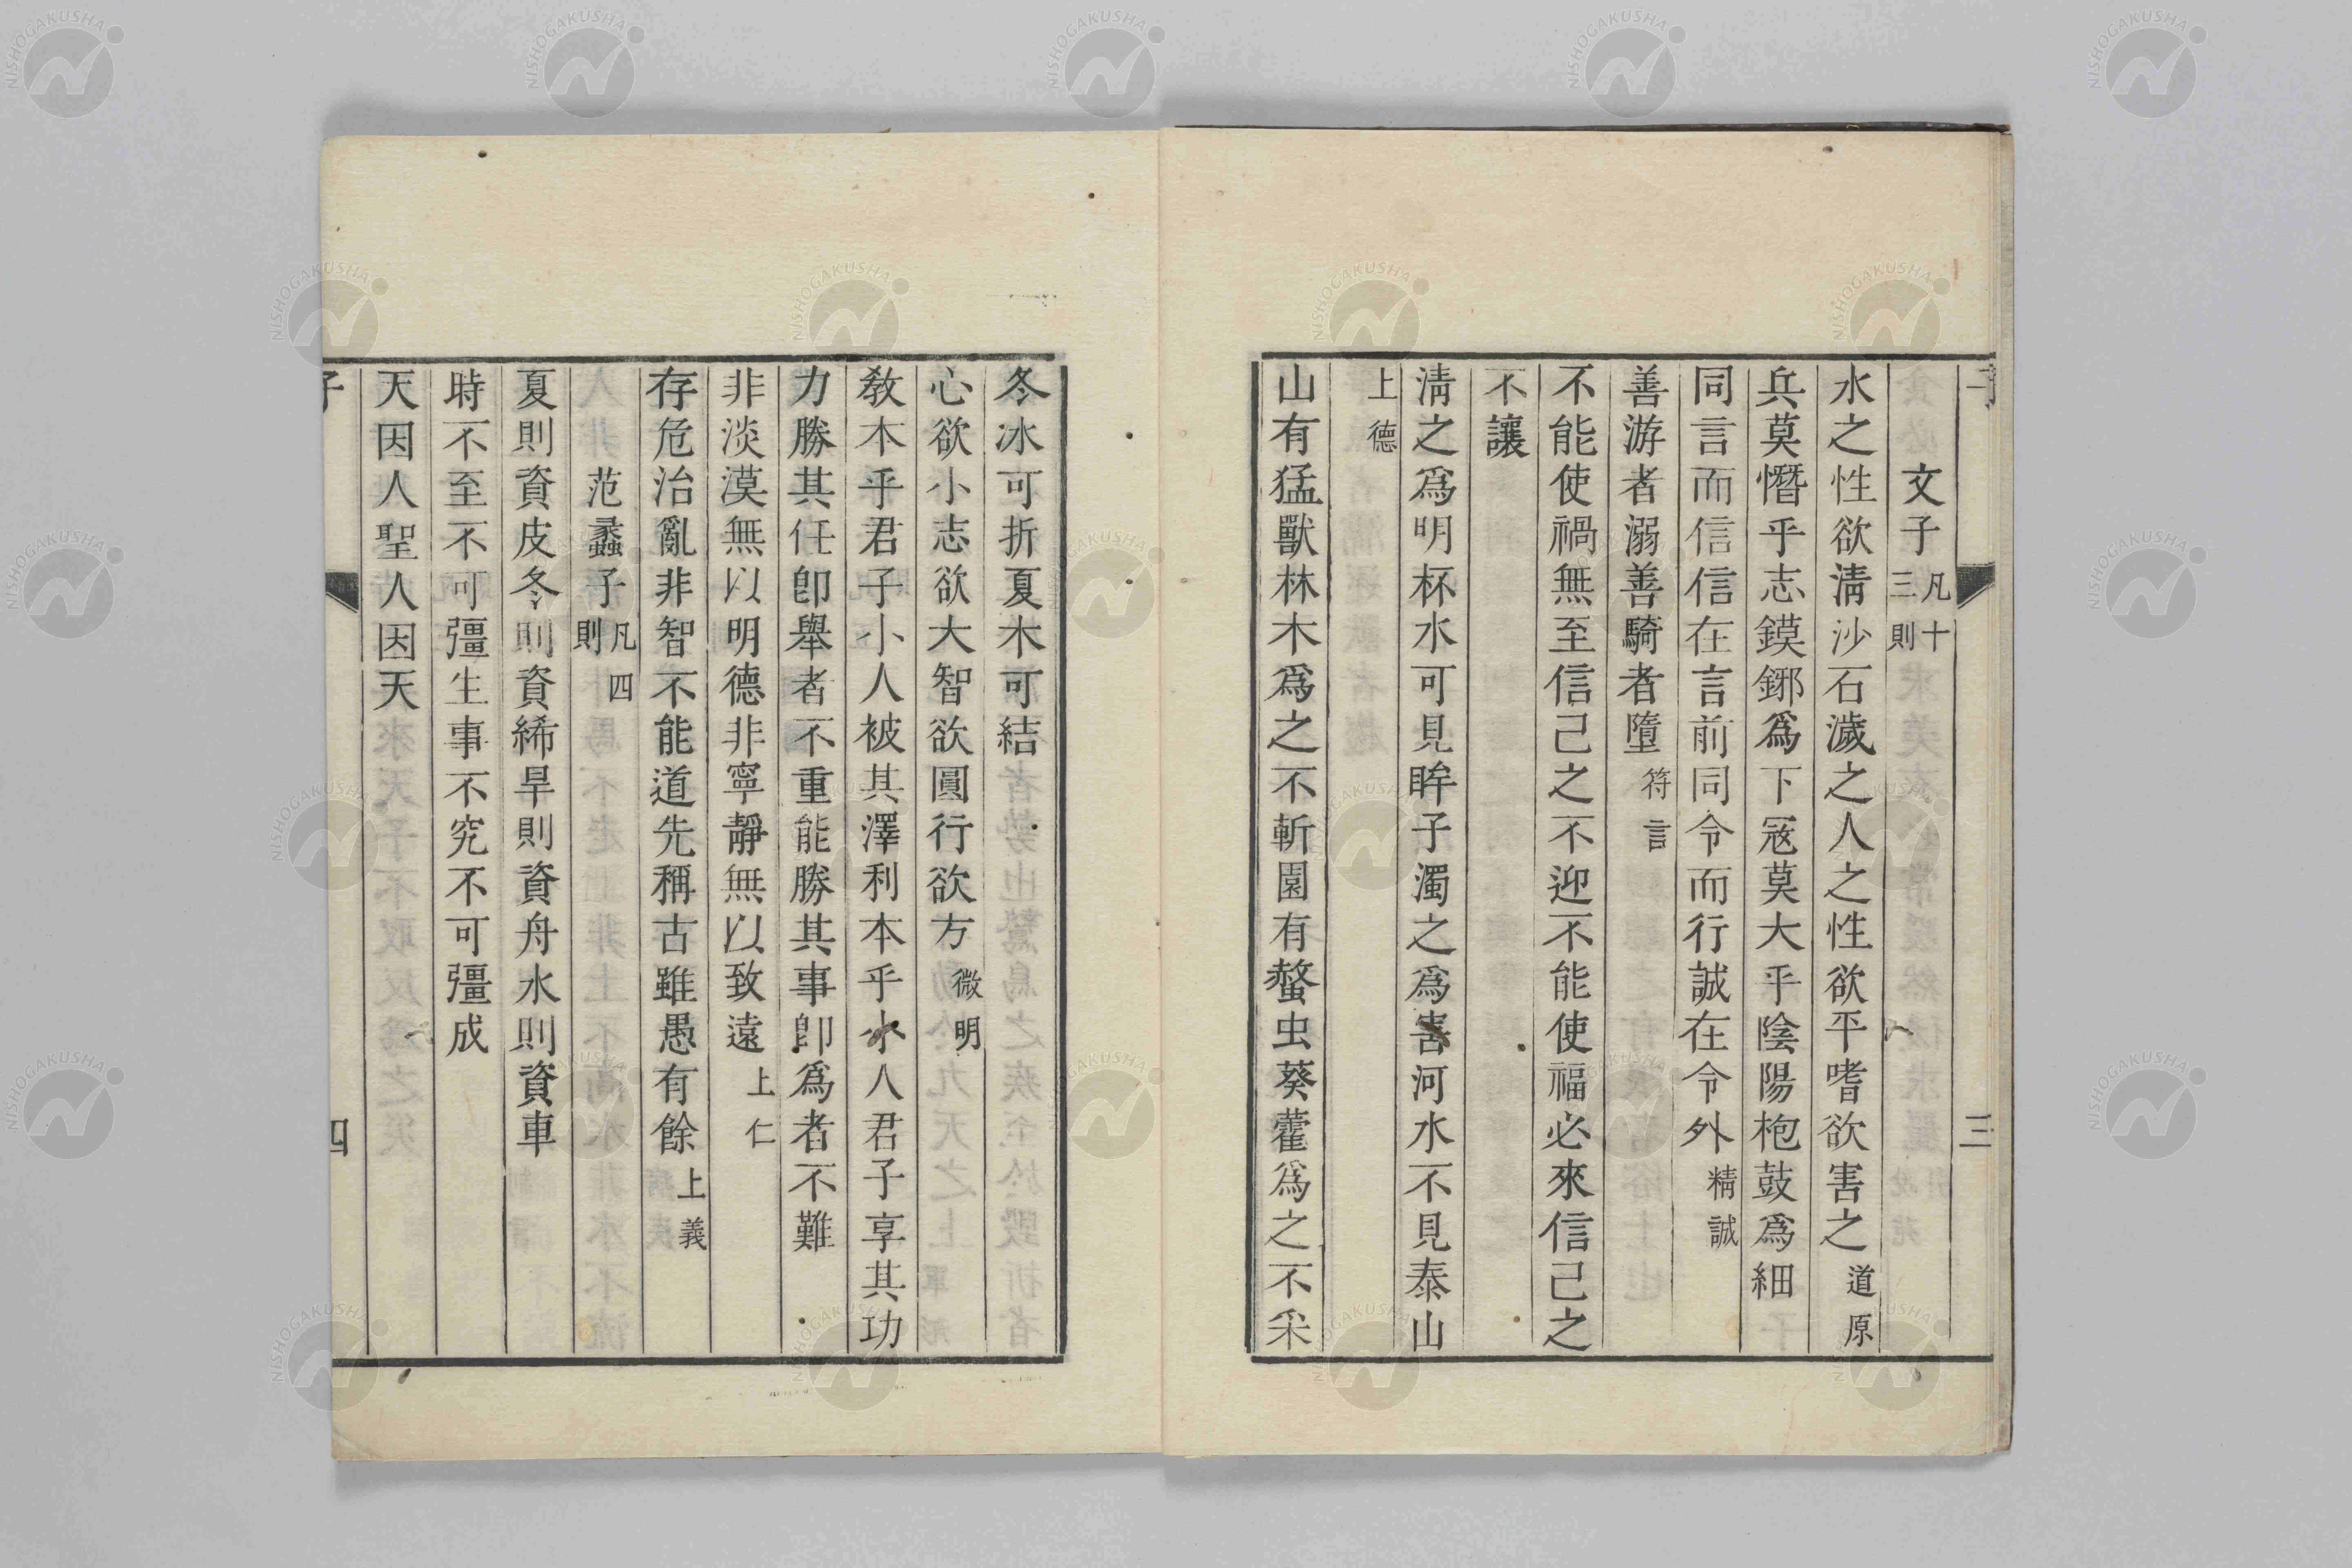 文子 凡十三則
水之性欲淸沙石濊之人之性欲平嗜欲害之 道原
兵莫憯乎志鏌鋣爲下寇莫大乎陰陽枹鼓爲細
同言而信信在言前同令而行誠在令外 精誠
善游者溺善騎者墮 符言
不能使禍無至信己之不迎不能使福必來信己之
不讓
淸之爲明杯水可見眸子濁之爲害河水不見泰山
上德
山有猛獸林木爲之不斬園有螫虫葵藿爲之不采
三
冬冰可折夏木可結
心欲小志欲大智欲圓行欲方 微明
敎本乎君子小人被其澤利本乎小人君子享其功
力勝其任卽舉者不重能勝其事卽爲者不難
非淡漠無以明德非寧靜無以致遠 上仁
存危治亂非智不能道先稱古雖愚有餘 上義
范蠡子 凡四則
夏則資皮冬則資絺旱則資舟水則資車
時不至不可彊生事不究不可彊成
天因人聖人因天
子
四
NISHOGAKUSHA